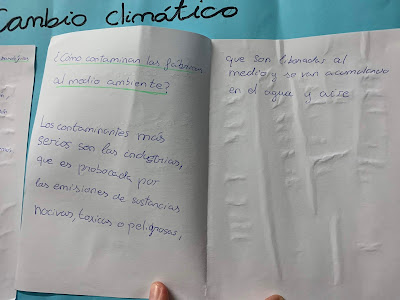 Cambio climático
¿Cómo contaminan las fábricas
al medio ambiente?
Los contaminantes más
serios son las industrias,
que es probocada por
las emisiones de sustancias
nocivas, toxicas o peligrosas,
que son liberadas al
medio y se van acumulando
en el agua y aire